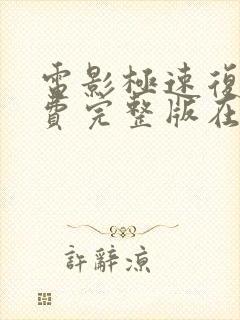 電影極速復
費完整版在
許辭涼